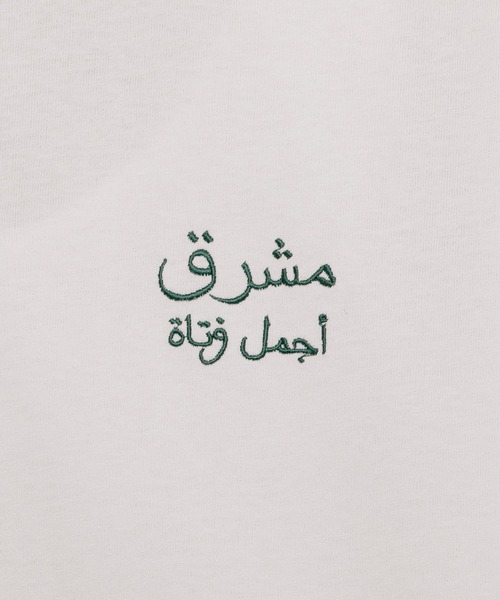 مشرق
أجمل فتاة